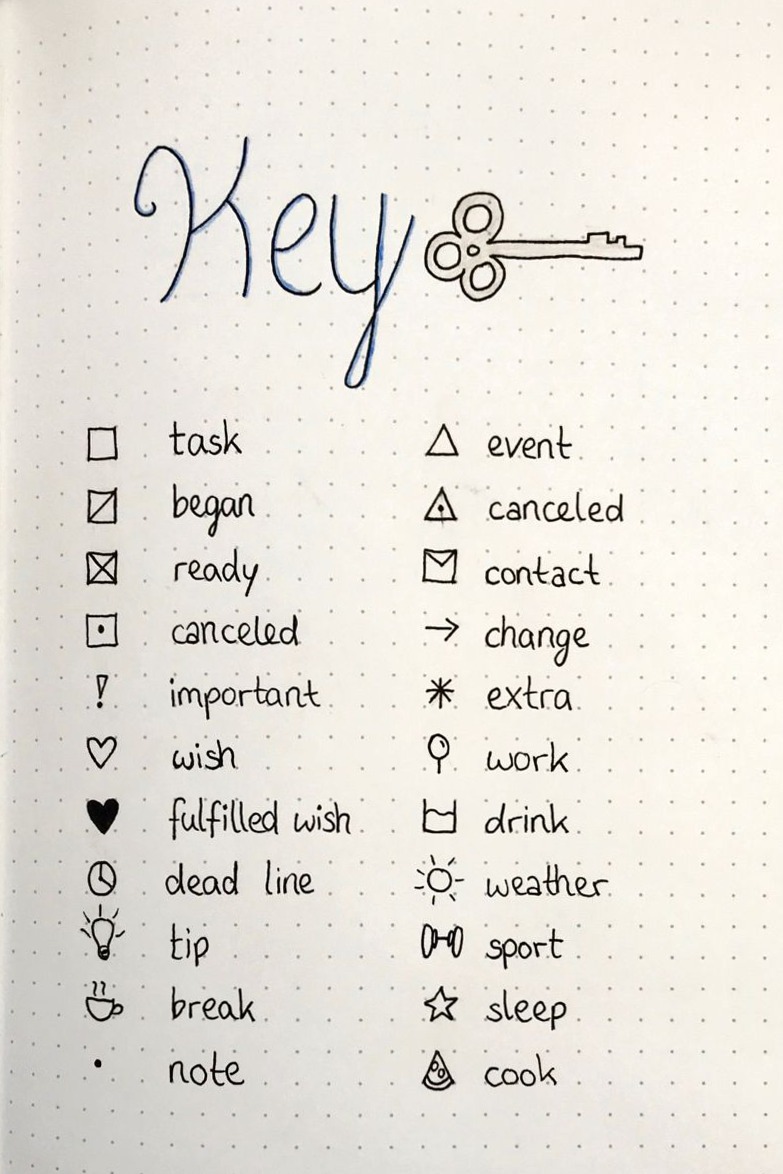 Key
task
began
ready
canceled
! important
wish
fulfilled wish
dead line
tip
break
note
event
canceled
contact
→ change
extra
work
drink
weather
sport
sleep
cook